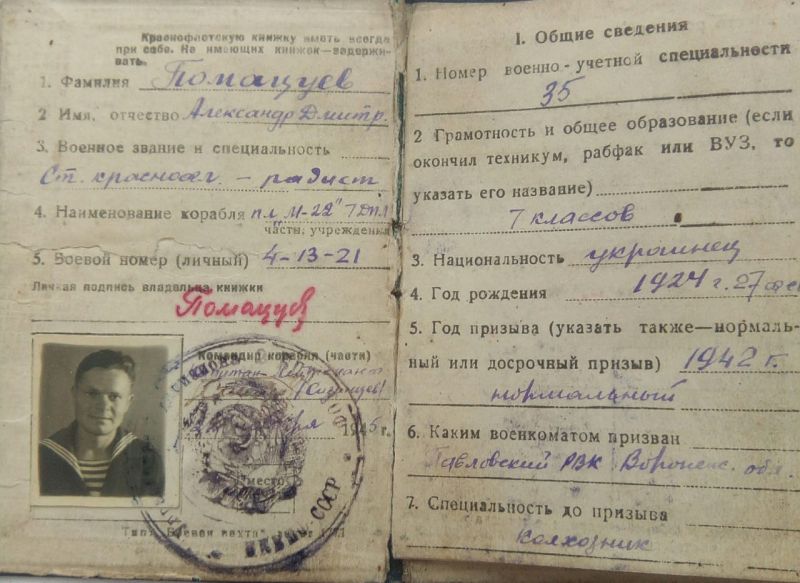 Краснофлотскую книжку иметь всегда
при себе. Не имеющих книжок—задержи-
вать.
1. Фамилия Помацуев
2 Имя, отчество Александр Дмитр.
3. Военное звание и специальность
Ст. краснофл. – радист
4. Наименование корабля пл „М-22" 7 ДПЛ
часть, учреждения
5. Боевой номер (личный) 4-13-21
Личная подпись владельца книжки
Помацуев
Командир корабля (части)
Капитан-лейтенант
1945 г.
Место
СССР
Тип. „Боевая вахта"
1. Общие сведения
1. Номер военно-учетной специальности
35
2 Грамотность и общее образование (если
окончил техникум, рабфак или ВУЗ, то
указать его название)
7 классов
3. Национальность украинец
4. Год рождения 1924 г. 27
5. Год призыва (указать также—нормаль-
ный или досрочный призыв) 1942 г.
нормальный
6. Каким военкоматом призван
Павловский РВК Воронеж. обл.
7. Специальность до призыва
колхозник